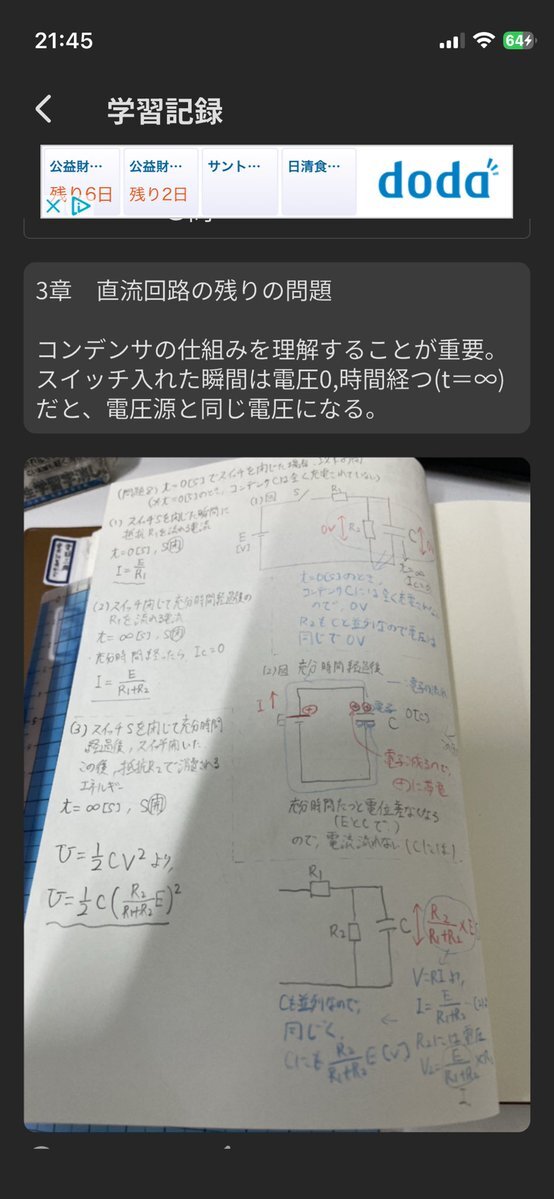 21:45
64
学習記録
公益財…
残り6日
公益財…
残り2日
サント…
日清食…
doda
3章 直流回路の残りの問題
コンデンサの仕組みを理解することが重要。
スイッチ入れた瞬間は電圧0,時間経つ(t＝∞)
だと、電圧源と同じ電圧になる。
(問題8) t=0[s]でスイッチを閉じた場合、
(※t=0[s]のとき、コンデンサCは全く充電されていない)
(1) スイッチSを閉じた瞬間に
抵抗R1を流れる電流
t=0[s], S閉
I=E/R1
(1)図
S
R1
E
[V]
0V
R2
C
t=∞
Ic=0
t=0[s]のとき、
コンデンサCには全く充電されない
ので、0V
R2もCと並列なので電圧は
同じで0V
(2) スイッチ閉じて充分時間経過後の
R1を流れる電流
t=∞[s], S閉
充分時間経ったら Ic=0
I=E/(R1+R2)
(2)図 充分時間経過後
電子の流れ
I↑
E
電子
C
電子減るので、
⊕に帯電
充分時間たつと電位差なくなる
(EとCで)
ので、電流流れない(Cには)
(3) スイッチSを閉じて充分時間
経過後、スイッチ開いた
この後、抵抗R2で消費される
エネルギー
t=∞[s], S開
U=1/2CV²より、
U=1/2C(R2/(R1+R2)E)²
R1
R2
C
R2/(R1+R2)×E
V=RIより、
I=E/(R1+R2)
R2には電圧
V2=E/(R1+R2)×R
I
Cも並列なので、
同じく、
Cにも R2/(R1+R2)E[V]